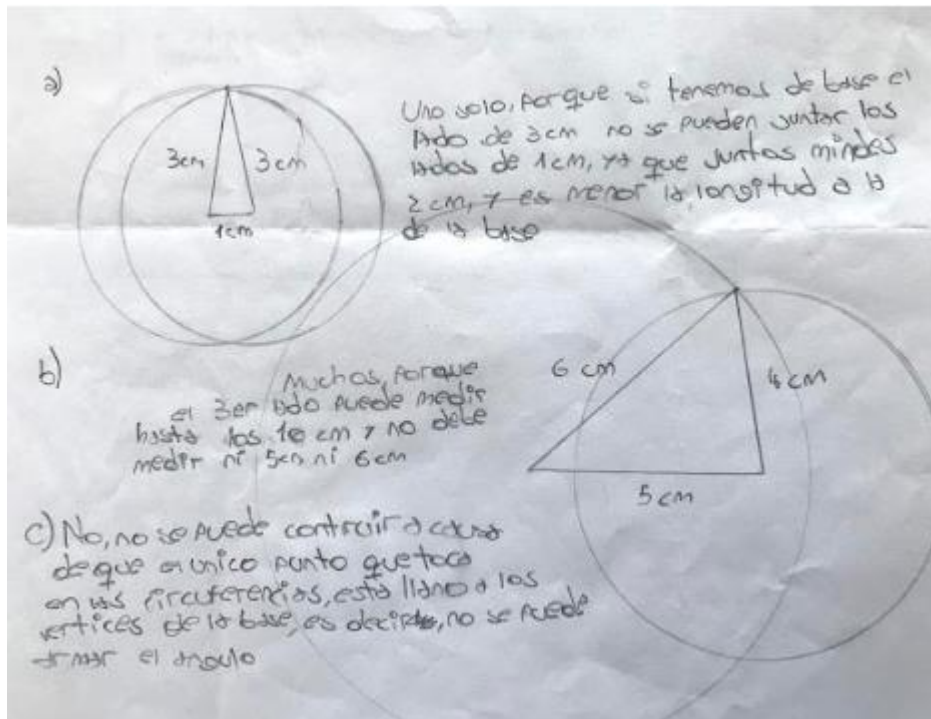 a)
3cm
3 cm
1cm
Uno solo, porque si tenemos de base el
lado de 3cm no se pueden juntar los
lados de 1cm, ya que juntas mindes
2 cm, y es menor la longitud a la
de la base
b)
Muchos, porque
el 3er lado puede medir
hasta los 10 cm y no debe
medir ni 5cm ni 6cm
6 cm
4 cm
5 cm
c) No, no se puede contruir a causa
de que el unico punto que toca
en las circuferencias, está llano a los
vertices de la base, es decir, no se puede
armar el angulo